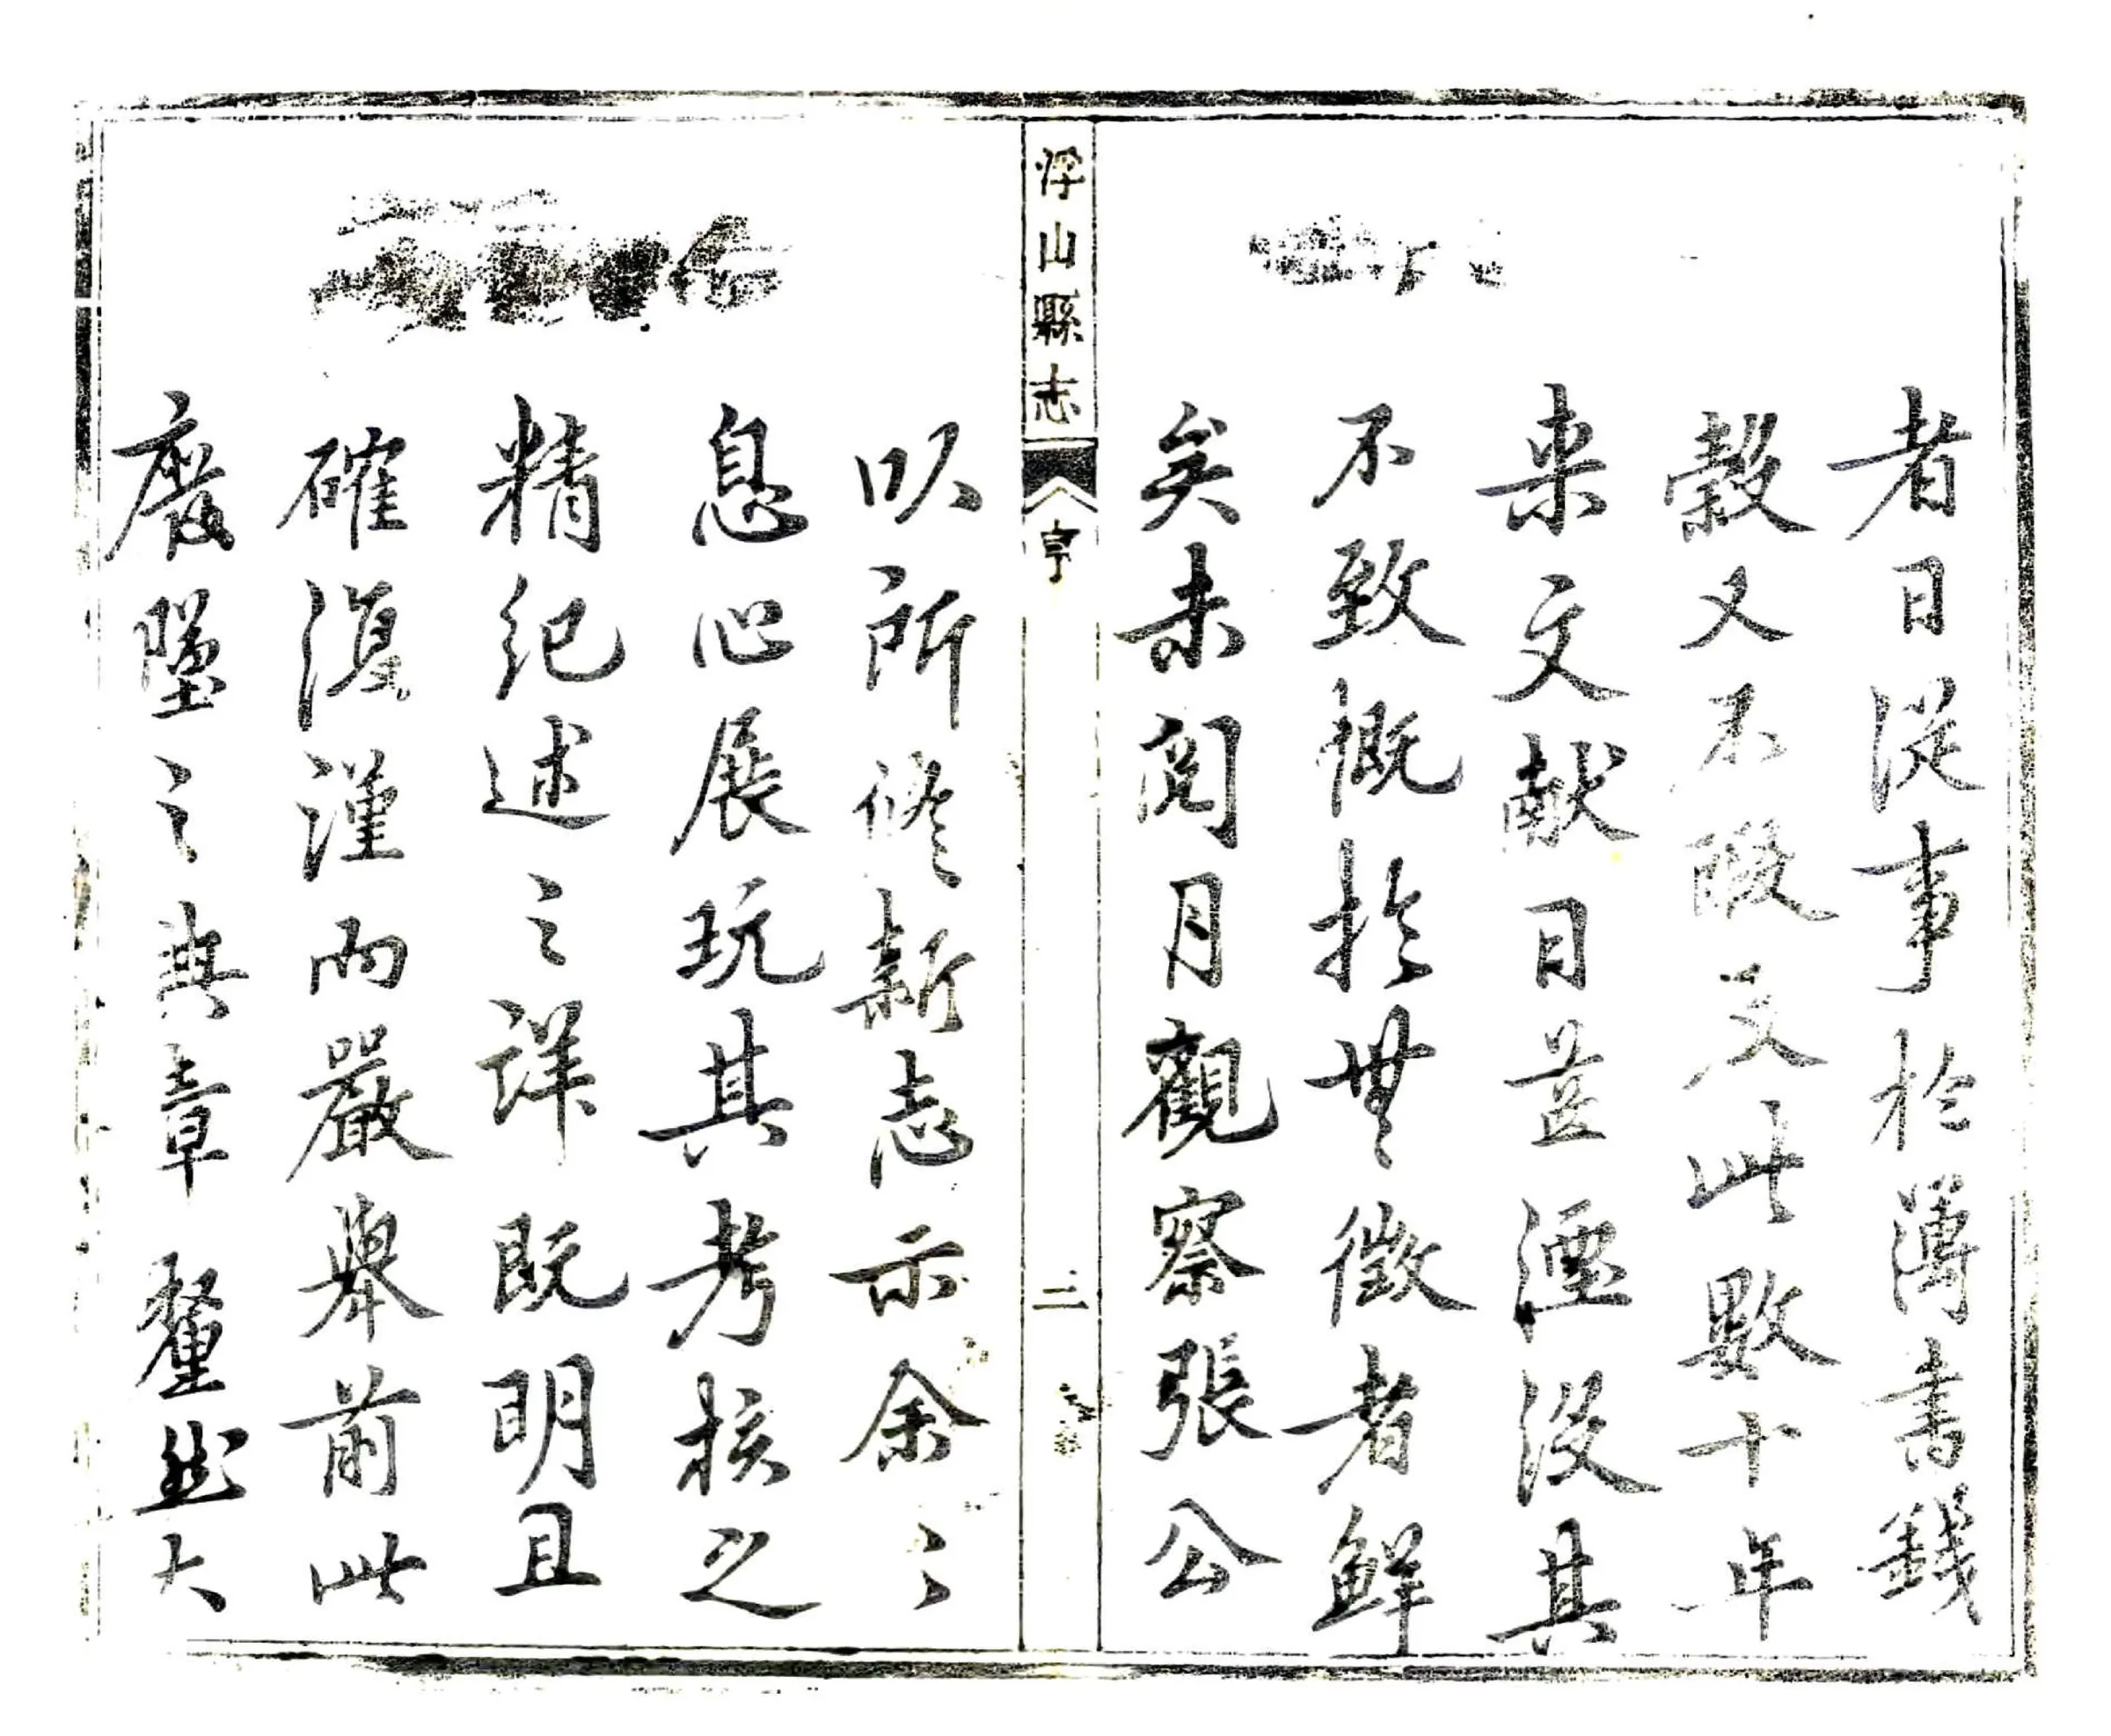 者日從事於簿書錢
穀又不暇及此數十年
来文獻日益湮没其
不致慨於無徵者鮮
矣未閱月觀察張公
浮山縣志 序 三
以所修新志示余〻
息心展玩其考核之
精紀述之詳既明且
確復謹而嚴舉前此
廢墜之典章釐然大